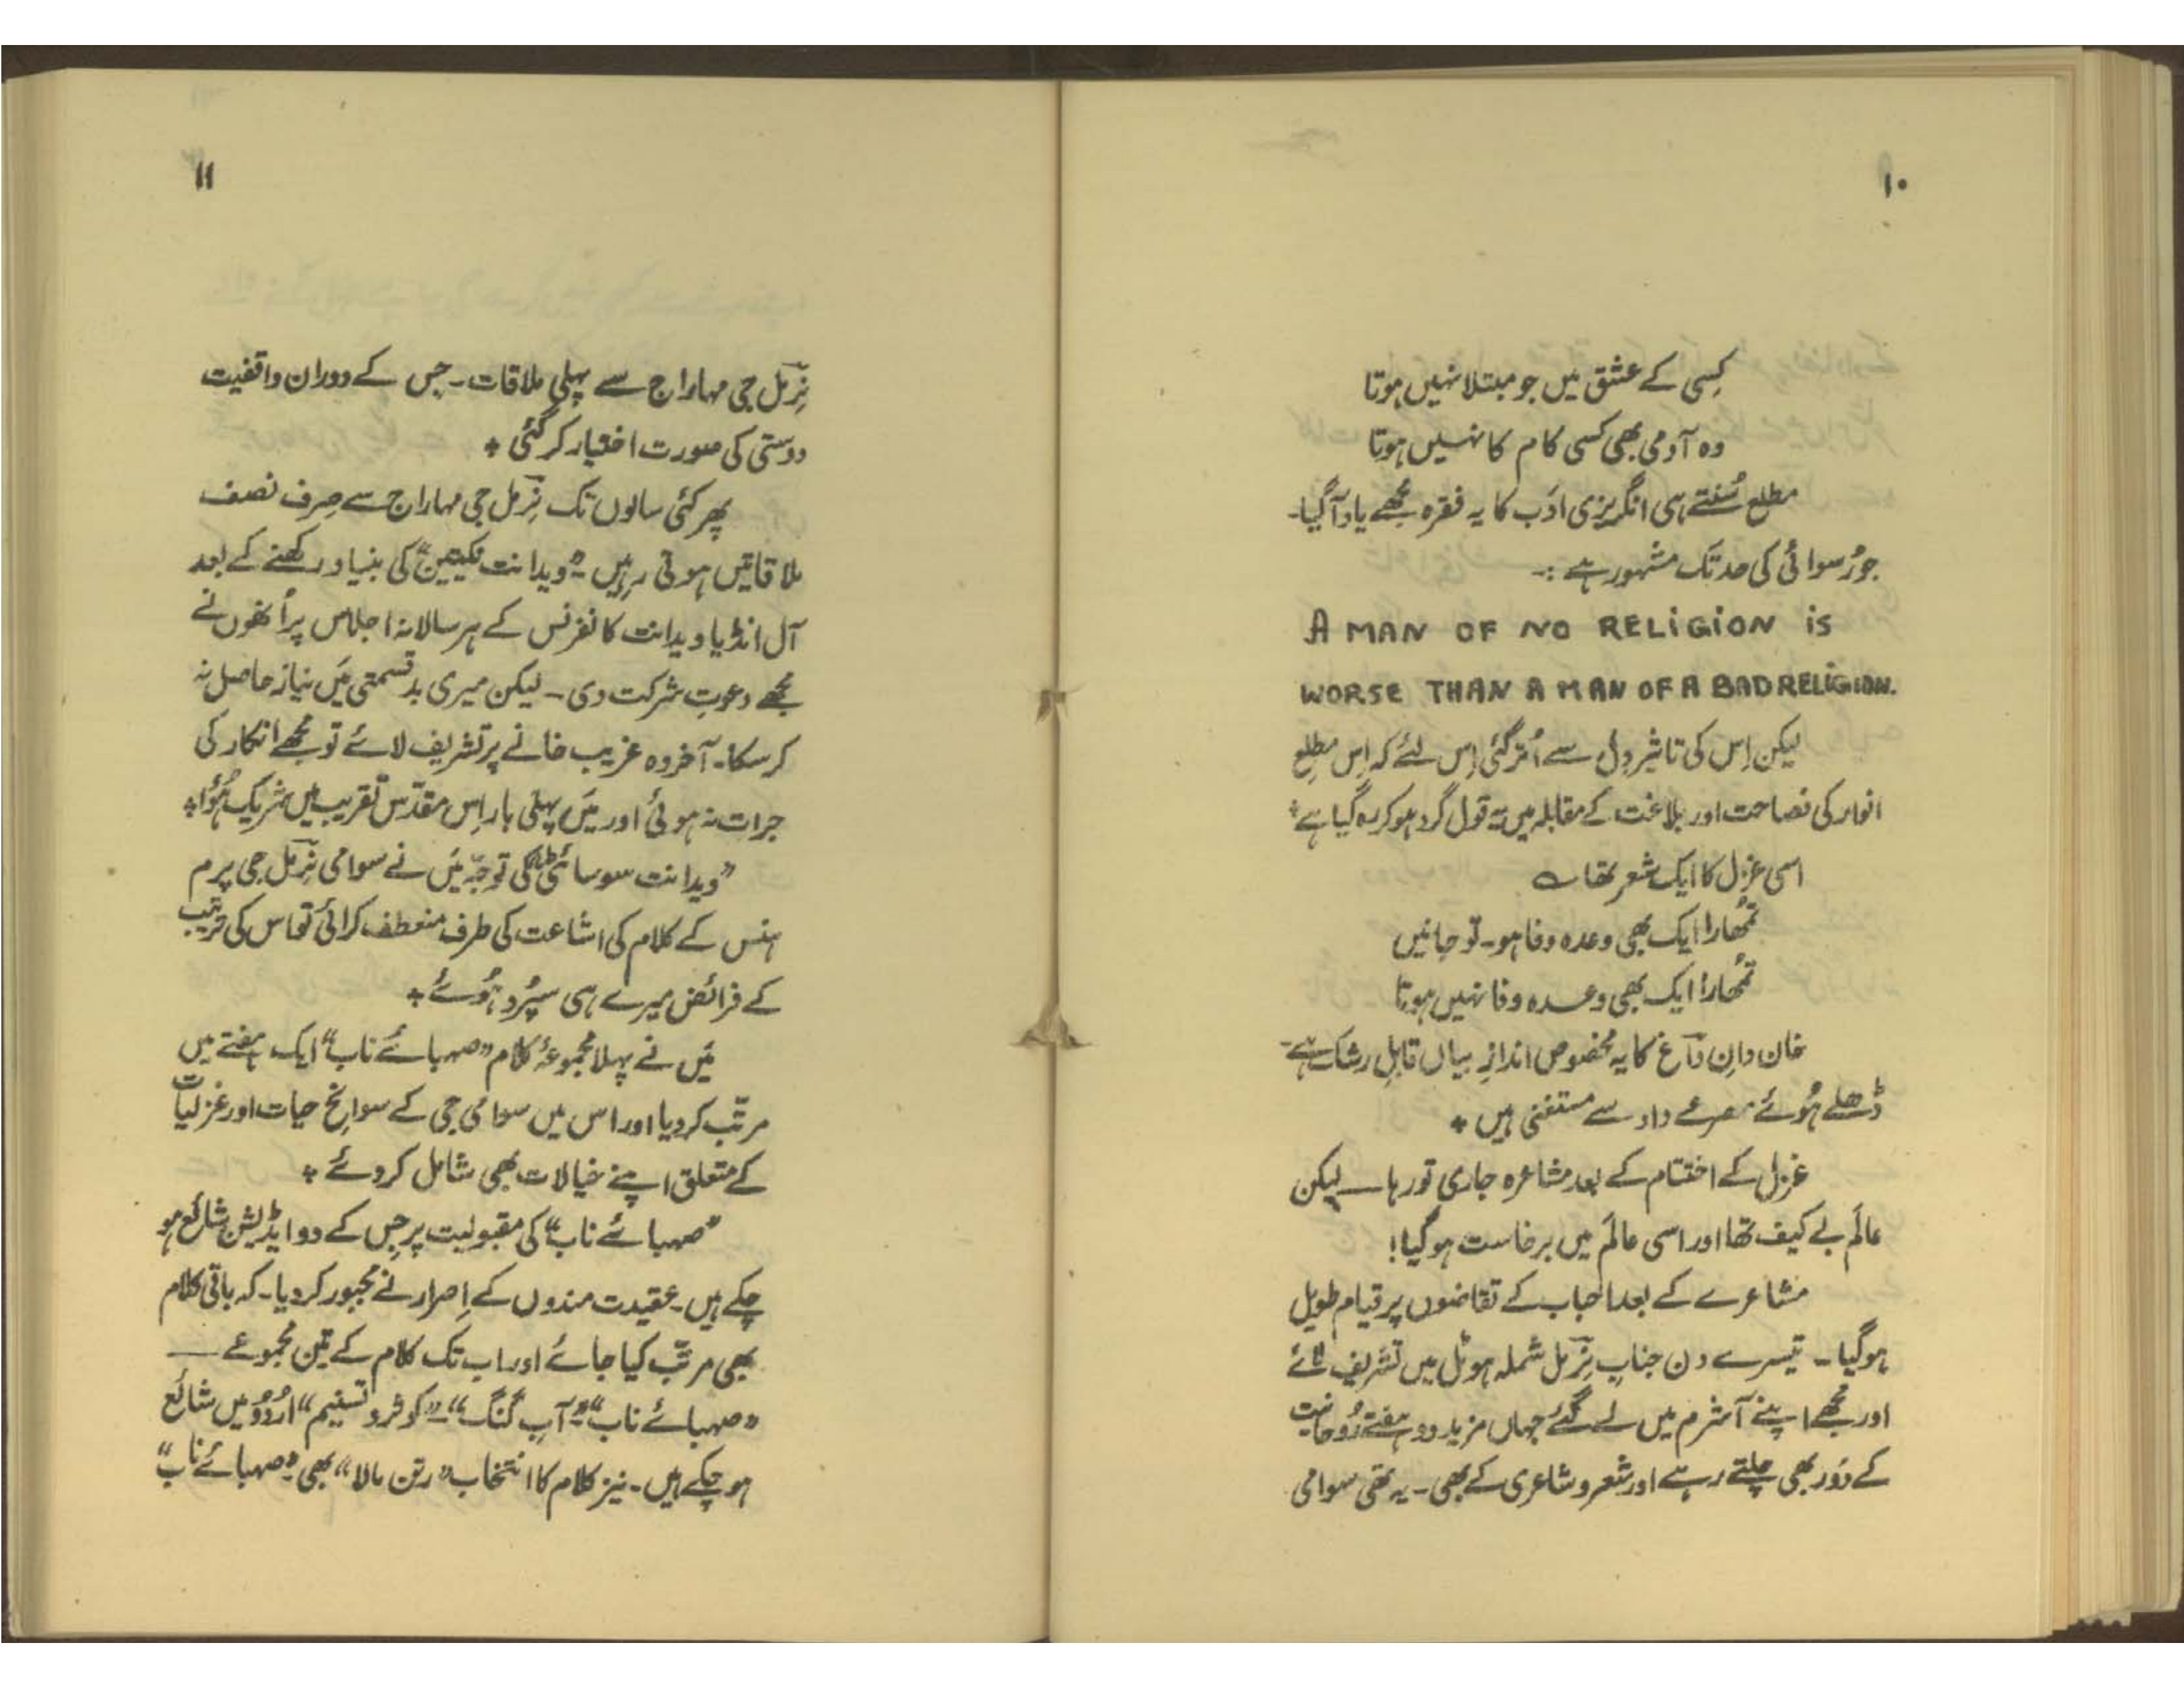 ۱۰
کِسی کے عشق میں جو مبتلا نہیں ہوتا
وہ آدمی بھی کسی کام کا نہیں ہوتا
مطلع سُنتے ہی انگریزی ادَب کا یہ فقرہ مجُھے یاد آ گیا۔
جو رُسوائی کی حد تک مشہور ہے :۔
A MAN OF NO RELIGION is
WORSE THAN A MAN OF A BAD RELIGION.
لیکن اِس کی تاثیر دِل سے اُتر گئی اِس لئے کہ اِس مطلعِ
انوار کی فصاحت اور بلاغت کے مقابلہ میں یہ قول گرد ہو کر رہ گیا ہے ٭
اسی غزل کا ایک شعر تھا ؎
تمُھارا ایک بھی وعدہ وفا ہو۔ تو جانیں
تمُھارا ایک بھی وعدہ وفا نہیں ہوتا
خان دانِ داغؔ کا یہ مخصوص اندازِ بیاں قابلِ رشک ہے۔
ڈھلے ہُوئے مصرعے داد سے مستغنی ہیں ٭
غزل کے اختتام کے بعد مشاعرہ جاری تو رہا — لیکن
عالَم بے کیف تھا اور اسی عالَم میں برخاست ہو گیا!
مشاعرے کے بعد احباب کے تقاضوں پر قیام طویل
ہو گیا۔ تیسرے دن جناب نِرمل شملہ ہوٹل میں تشریف لائے
اور مجُھے اپنے آشرم میں لے گئے جہاں مزید دو ہفتے رُوحانیت
کے دَور بھی چلتے رہے اور شعر و شاعری کے بھی۔ یہ تھی سوامی
۱۱
نِرمل جی مہاراج سے پہلی ملاقات۔ جس کے دوران واقفیت
دوستی کی صورت اختیار کر گئی ٭
پھر کئی سالوں تک نِرمل جی مہاراج سے صِرف نصف
ملاقاتیں ہوتی رہیں۔ "ویدانت نکیتن" کی بنیاد رکھنے کے بعد
آل انڈیا ویدانت کانفرنس کے ہر سالانہ اجلاس پر اُنھوں نے
مجُھے دعوتِ شرکت دی۔ لیکن میری بدقسمتی مَیں نیاز حاصل نہ
کر سکا۔ آخر وہ غریب خانے پر تشریف لائے تو مجھے انکار کی
جرات نہ ہوئی اور مَیں پہلی بار اِس مقدّس تقریب میں شریک ہُوا ٭
"ویدانت سوسائٹی" کی توجّہ مَیں نے سوامی نِرمل جی پرم
ہنس کے کلام کی اشاعت کی طرف منعطف کرائی تو اس کی ترتیب
کے فرائض میرے ہی سپُرد ہُوئے ٭
مَیں نے پہلا مجموعۂ کلام "صہبائے ناب" ایک ہفتے میں
مرتّب کر دیا اور اس میں سوامی جی کے سوانح حیات اور غزلیات
کے متعلق اپنے خیالات بھی شامل کر دئے ٭
"صہبائے ناب" کی مقبولیت پر جِس کے دو ایڈیشن شائع ہو
چکے ہیں۔ عقیدت مندوں کے اِصرار نے مجبور کر دیا۔ کہ باقی کلام
بھی مرتّب کیا جائے اور اب تک کلام کے تین مجموعے —
"صہبائے ناب"۔ "آبِ گنگ"۔ "کوثر و تسنیم" اُردُو میں شائع
ہو چکے ہیں۔ نیز کلام کا انتخاب "رتن مالا" بھی "صہبائے ناب"